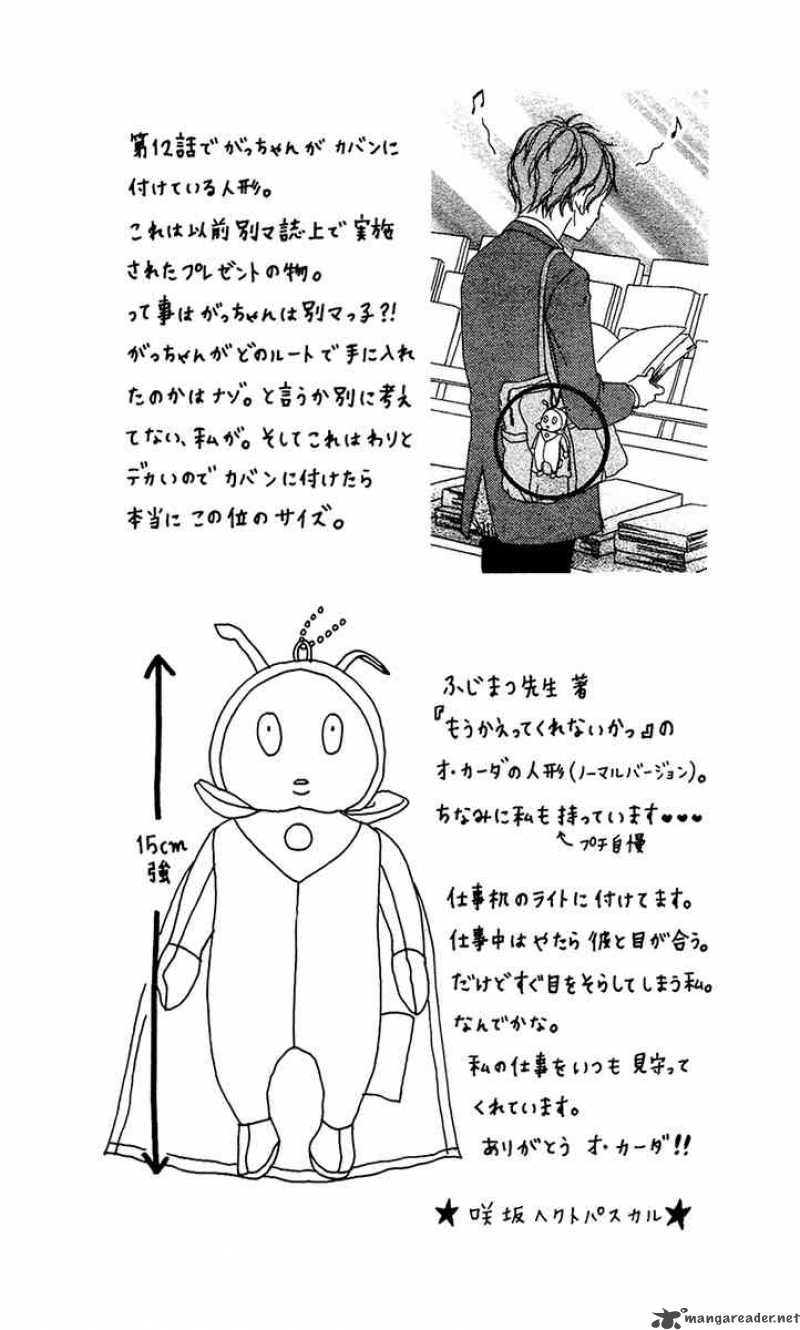 第12話でがっちゃんがカバンに
付けている人形。
これは以前別マ誌上で実施
されたプレゼントの物。
って事はがっちゃんは別マっ子?!
がっちゃんがどのルートで手に入れ
たのかはナゾ。と言うか別に考え
てない、私が。そしてこれはわりと
デカいのでカバンに付けたら
本当にこの位のサイズ。
15cm
強
ふじまつ先生 著
『もうかえってくれないかっ』の
オ・カーダの人形(ノーマルバージョン)。
ちなみに私も持っています♥♥♥
プチ自慢
仕事机のライトに付けてます。
仕事中はやたら彼と目が合う。
だけどすぐ目をそらしてしまう私。
なんでかな。
私の仕事をいつも見守って
くれています。
ありがとう オ・カーダ!!
★咲坂ヘクトパスカル★
mangareader.net